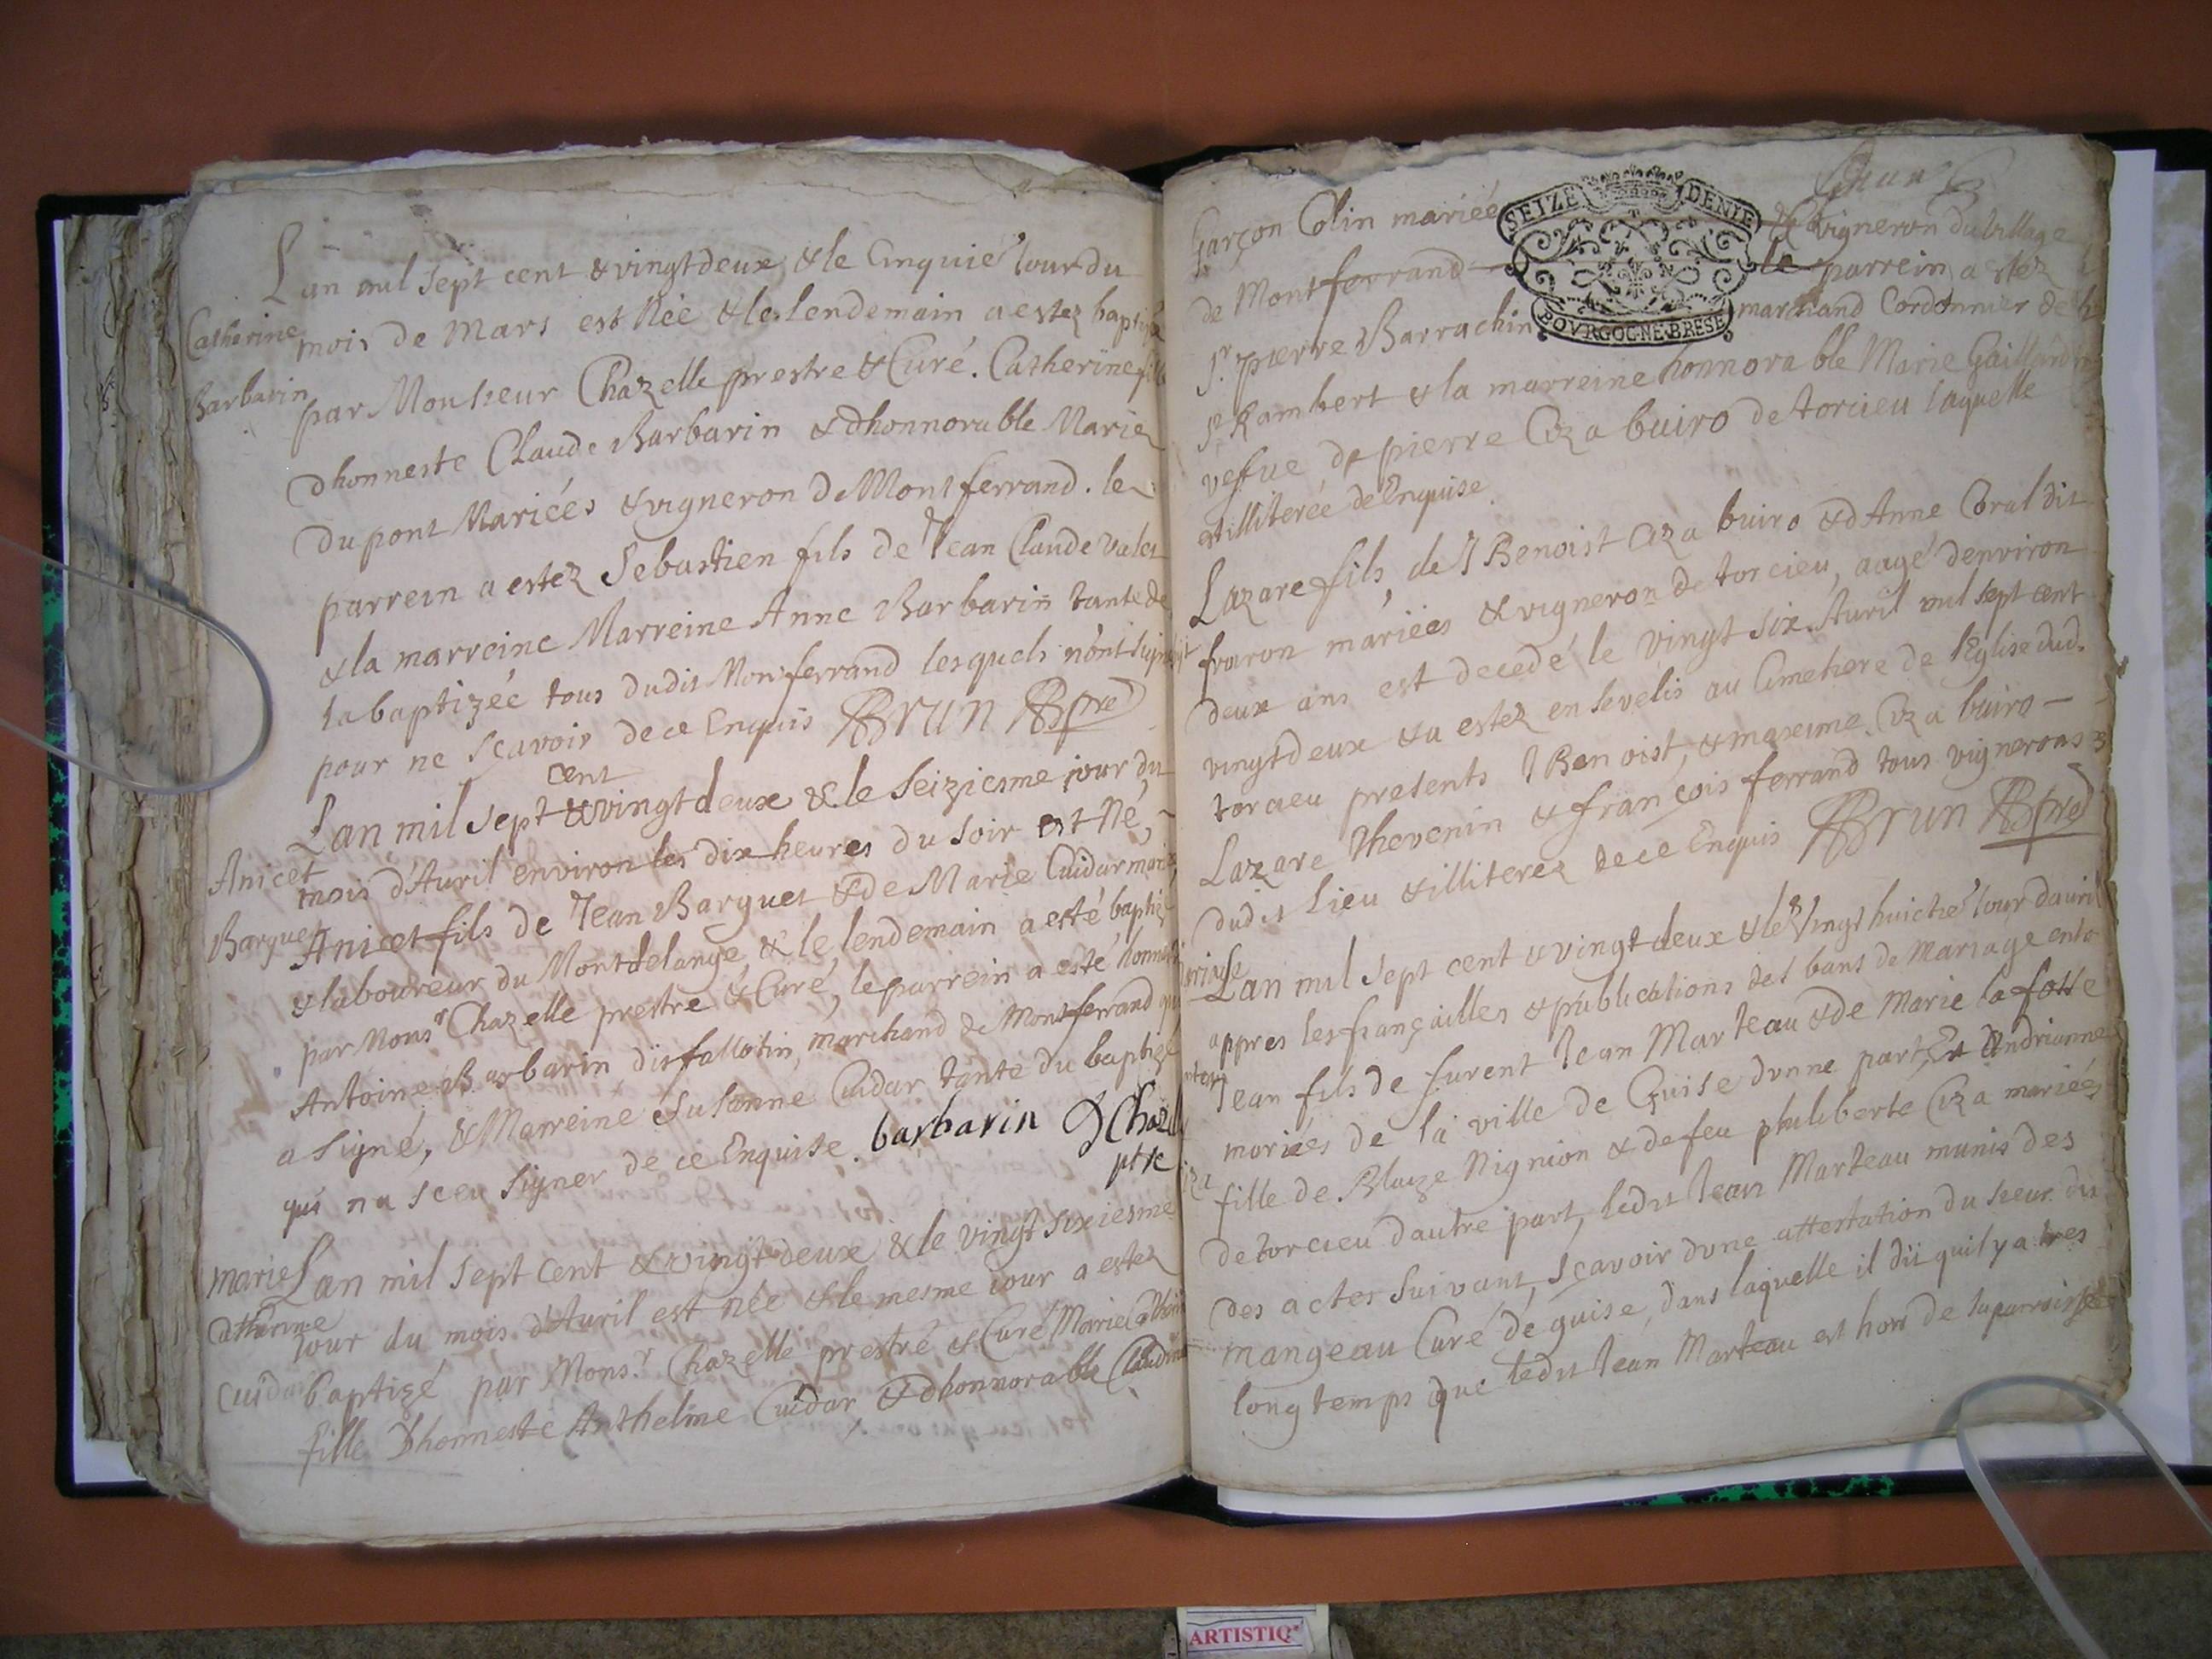 Lan mil sept cent & vingt deux & le Cinquie Iour du
Catherine
mois de Mars est Née & le lendemain a estez baptizée
Barbarin
par Monsieur Chazelle prestre & Curé. Catherine fille
dhonneste Claude Barbarin & dhonnorable Marie
Dupont Mariées & vigneron de Montferrand. le
parrein a estez Sebastien fils de Jean Claude Valet
& la marreine Marreine Anne Barbarin tante de
la baptizée tous dudit Montferrand lesquels n'ont
pour ne sçavoir de ce Enquis Brun
cent
Lan mil sept & vingt deux & le Seiziesme jour du
Anicet
mois d'Auril environ les dix heures du soir est Né,
Barquet
Anicet fils de Jean Barquet & de Marie Cuidar mariez
& laboureur du Montdelange, & le lendemain a esté baptizé
par Monsr Chazelle prestre & Curé, le parrein a esté honneste
Antoine Barbarin dit fallotin, marchand de Montferrand qui
a signé, & Marreine Susanne Cuidar tante du baptizé
qui na sceu signer de ce Enquise. barbarin Chazelle
ptre
marie
Lan mil sept Cent & vingt deux & le vingt sixiesme
Catherine
Iour du mois d'Auril est née & le mesme iour a estez
Cuidar
baptizé par Monsr Chazelle prestre & Curé Marie Catherine
fille Dhonneste Anthelme Cuidar & dhonnorable Claudine
Garçon Colin mariéé
SEIZE DENIE
BOVRGOGNE BRESE
& vigneron du village
de Montferrand le parrein a estez
Sr pierre Barrachin marchand Cordonnier de
St Rambert & la marreine honnorable Marie
vefue de pierre Ciza buiro de torcieu laquelle
est illiterée de Enquise.
Lazare fils, de Benoist Ciza buiro & d'Anne Coral dit
fraron mariées & vigneron de torcieu, aagé denviron
deux ans est decedé le vingt six Auril mil sept cent
vingt deux & a estez ensevelis au Cimetiere de l'Eglise dud.
torcieu presents Benoist, & maxime Ciza buiro
Lazare Thevenin & françois ferrand tous vignerons
dudit lieu & illiterez de ce Enquis Brun
Lan mil sept cent & vingt deux & le Vingt huictie Iour dauril
appres les françailles & publications des bans de Mariage entre
Jean fils de furent Jean Marteau & de Marie la fosse
mariées de la ville de Guise dunne part, Et Andrianne
fille de Blaize Nignion & de feu philiberte Ciza mariées
de torcieu dautre part, ledit Jean Marteau munis des
des actes suivant, sçavoir dune attestation du sieur du
mangeau Curé de guise, dans laquelle il dit quil y a tres
long temps que ledit Jean Marteau est hors de la parroisse